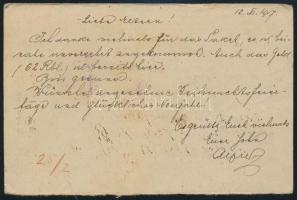 12. XI. 1917.
Liebe Eltern!
Ich danke vielmals für das Paket, es ist bei-
nate unversehrt angekommen. Auch das Geld
(62 Rbl.) ist bereits hier.
Bin gesund.
Wünsche angenehme Weihnachtsfeier-
tage und glückliches Neujahr.
Es grüßt Euch vielmals
Euer Sohn
25/2